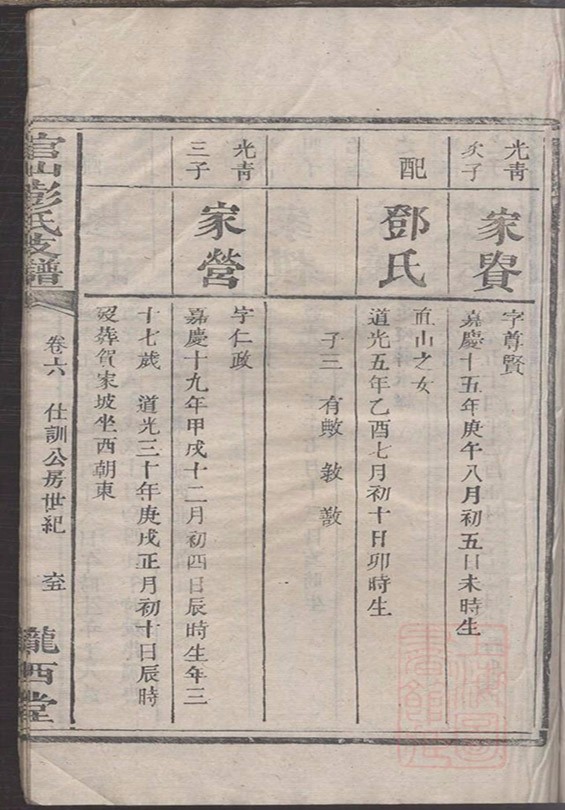 光青
次子
家賢
字尊賢
嘉慶十五年庚午八月初五日未時生
配
鄧氏
血山之女
道光五年乙酉七月初十日卯時生
子三 有 敘
光青
三子
家營
字仁政
嘉慶十九年甲戌十二月初四日辰時生年三
十七歲 道光三十年庚戌正月初十日辰時
歿葬賀家坡坐西朝東
官山彭氏支譜
卷六 仕訓公房世紀
隴西堂